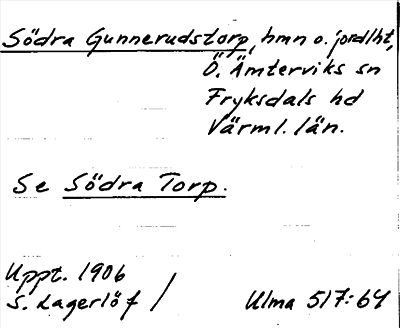 Södra Gunnerudstorp, hmn o. jordlht,
Ö. Ämterviks sn
Fryksdals hd
Värml. län.
Se Södra Torp.
Uppt. 1906
S. Lagerlöf /
Ulma 517:64